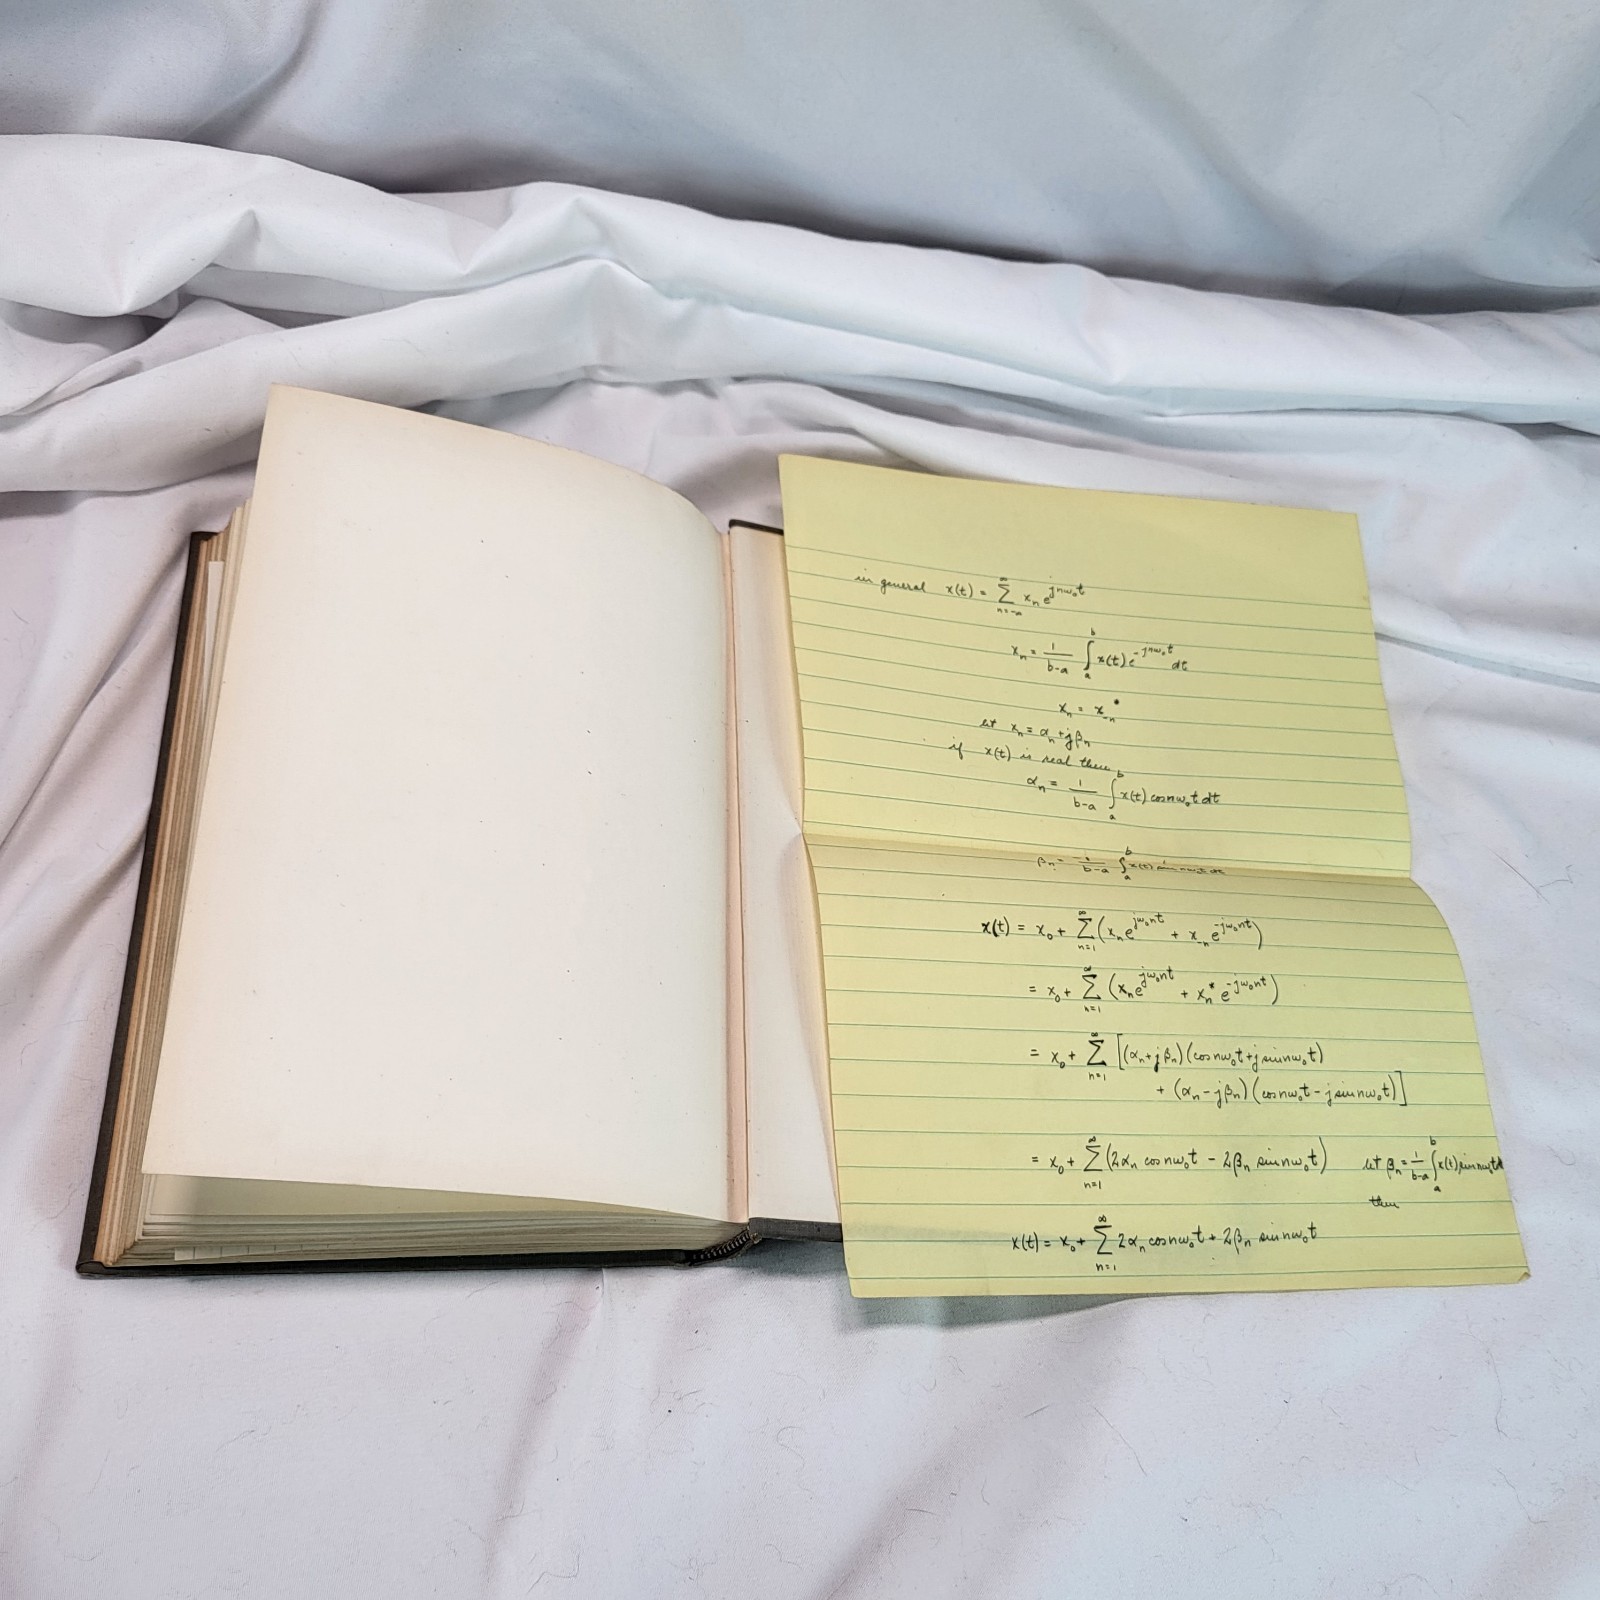 in general x(t) = ∑_{n=-∞}^{∞} x_n e^{jnω₀t}
x_n = 1/(b-a) ∫_a^b x(t) e^{-jnω₀t} dt
x_n = x_{-n}^*
let x_n = α_n + jβ_n
if x(t) is real then
α_n = 1/(b-a) ∫_a^b x(t) cos nω₀t dt
β_n = -1/(b-a) ∫_a^b x(t) sin nω₀t dt
x(t) = x₀ + ∑_{n=1}^{∞} (x_n e^{jω₀nt} + x_{-n} e^{-jω₀nt})
= x₀ + ∑_{n=1}^{∞} (x_n e^{jω₀nt} + x_n^* e^{-jω₀nt})
= x₀ + ∑_{n=1}^{∞} [(α_n + jβ_n)(cos nω₀t + j sin nω₀t)
+ (α_n - jβ_n)(cos nω₀t - j sin nω₀t)]
= x₀ + ∑_{n=1}^{∞} (2α_n cos nω₀t - 2β_n sin nω₀t) let β_n = 1/(b-a) ∫_a^b x(t) sin nω₀t dt
then
x(t) = x₀ + ∑_{n=1}^{∞} 2α_n cos nω₀t + 2β_n sin nω₀t